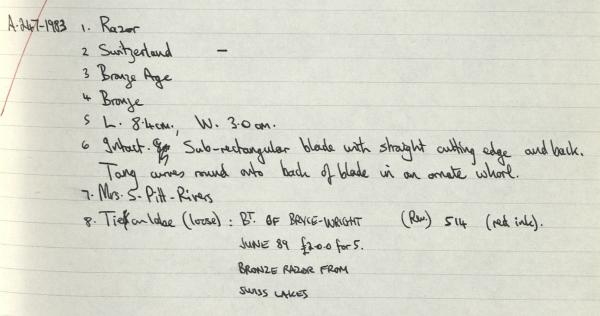 A.247-1983 1. Razor
2 Switzerland –
3 Bronze Age
4 Bronze
5 L. 8.4cm, W. 3.0cm.
6 Intact. Sub-rectangular blade with straight cutting edge and back.
Tang curves round onto back of blade in an ornate whorl.
7. Mrs. S. Pitt-Rivers
8. Tie on labe (loose) : BT. OF BRYCE-WRIGHT (Rev.) 514 (red ink).
JUNE 89 £2.0.0 for 5.
BRONZE RAZOR FROM
SWISS LAKES